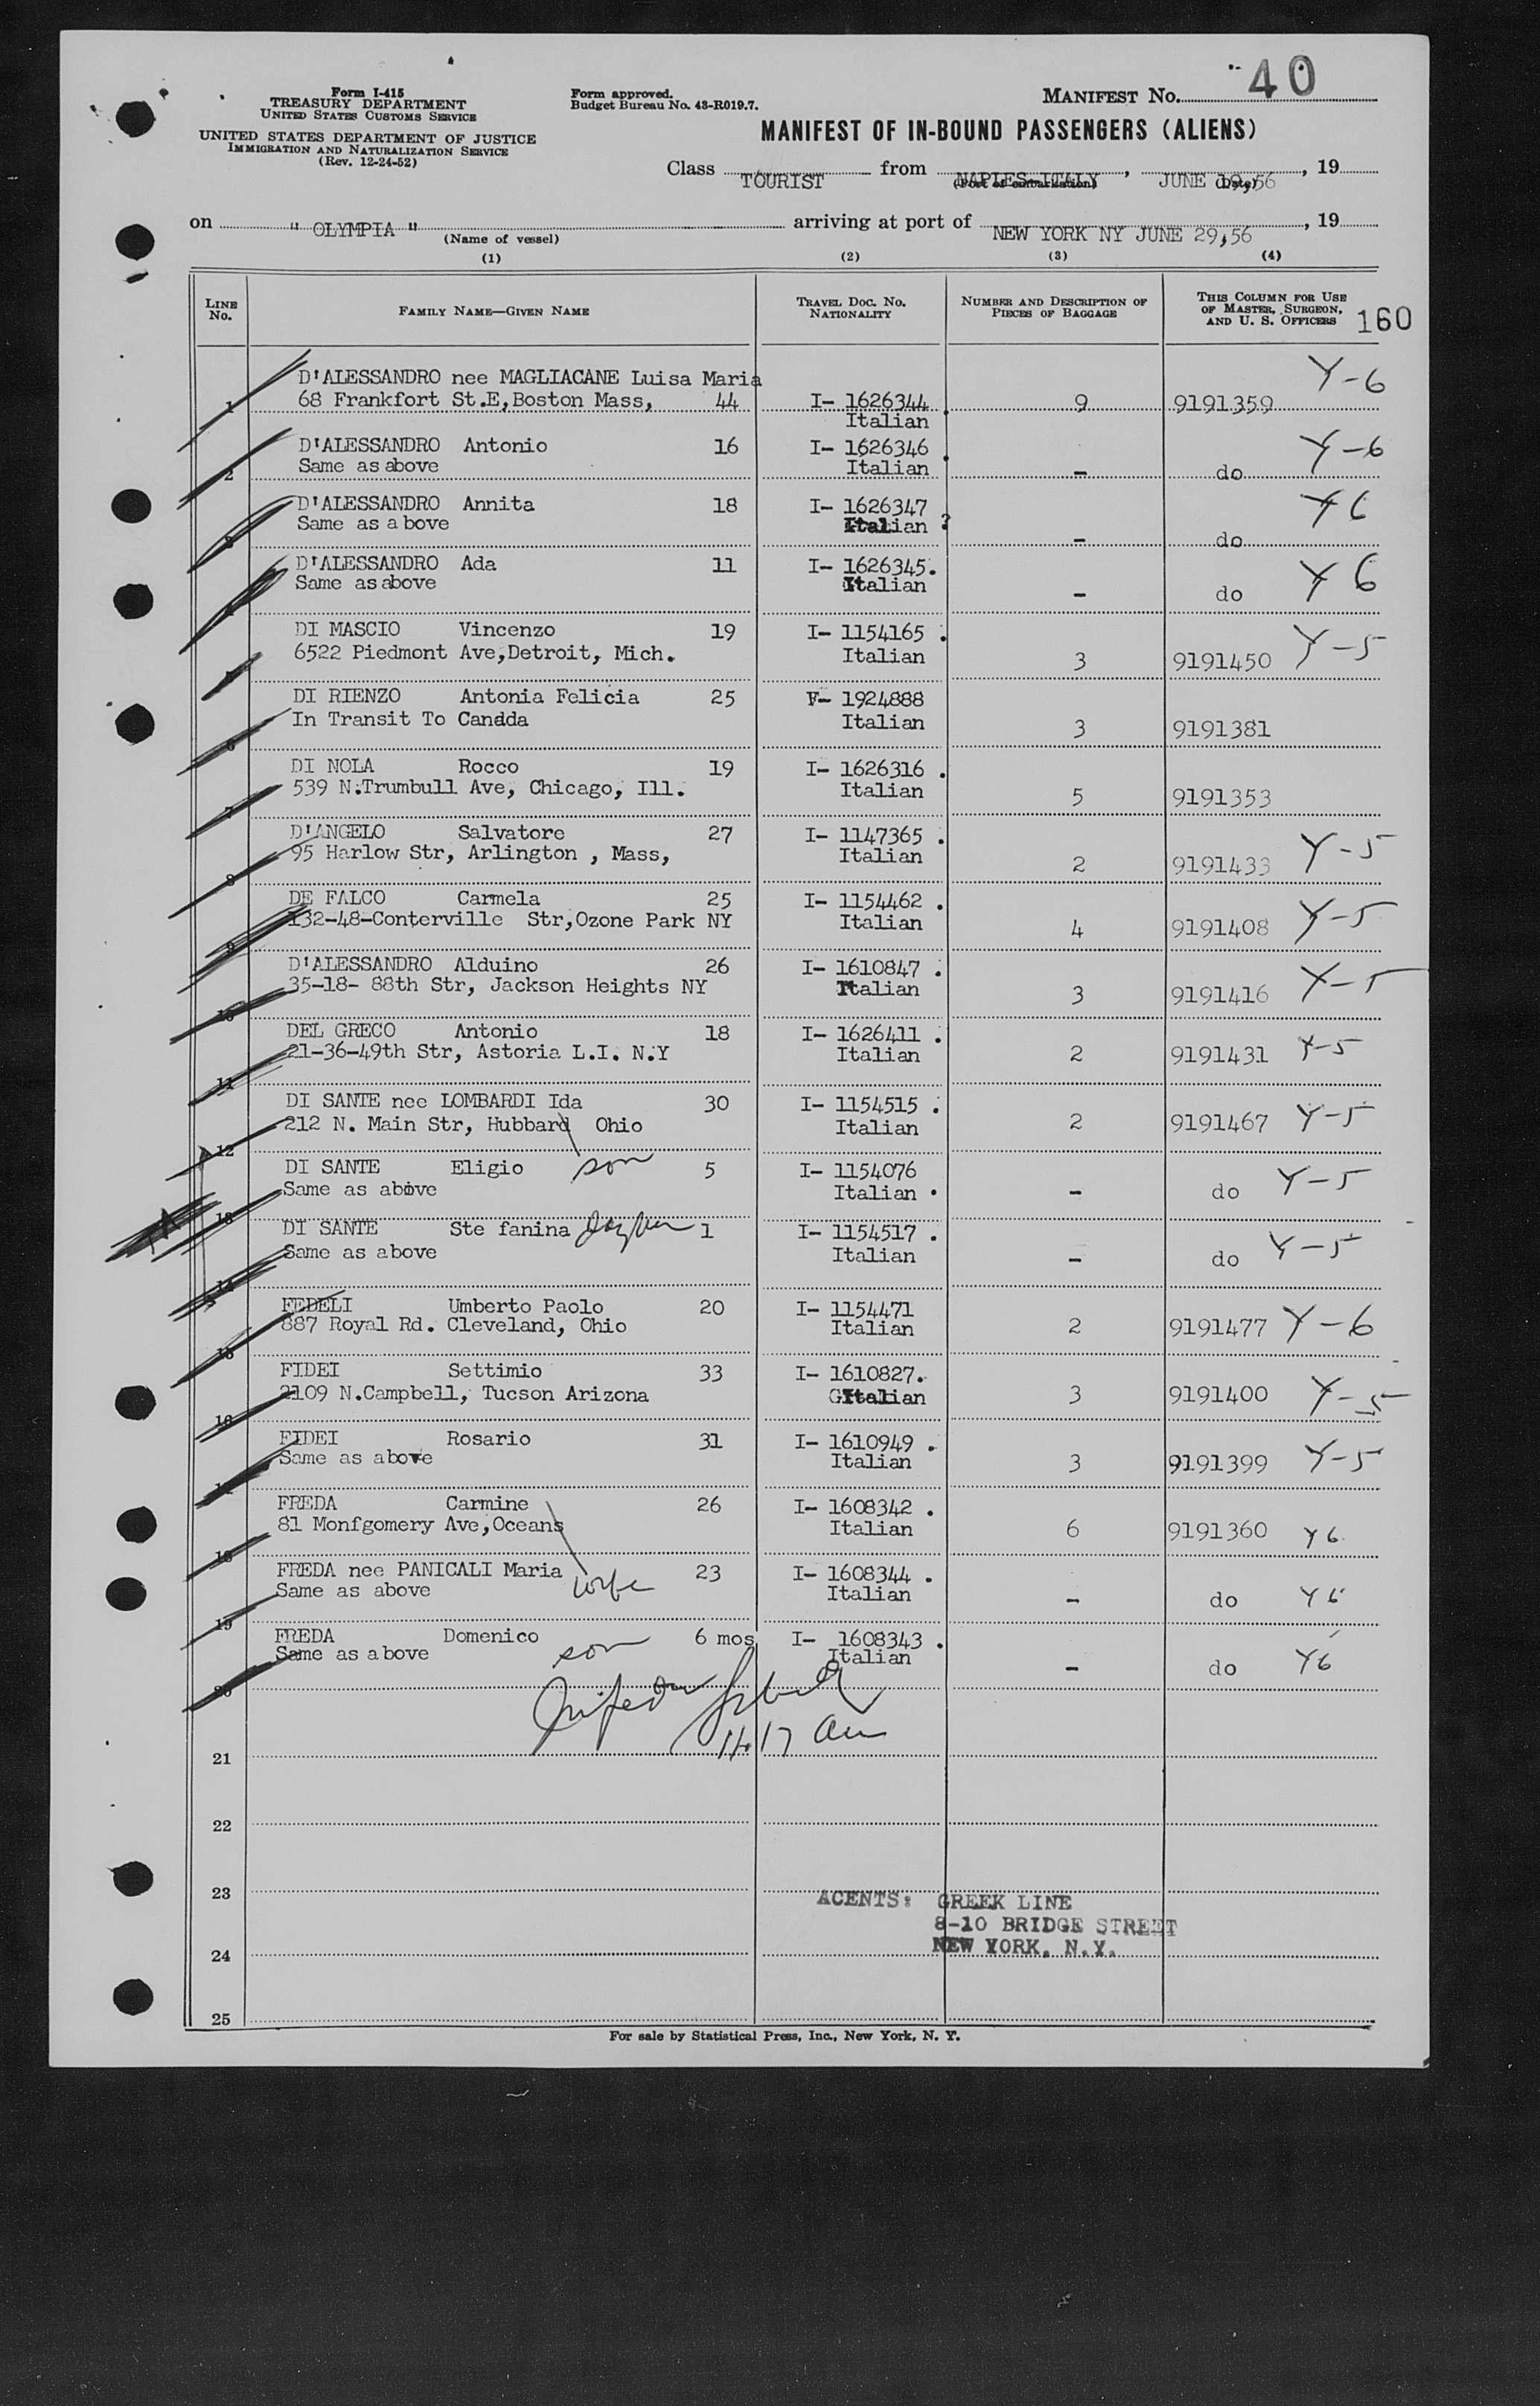 40
Form I-415
TREASURY DEPARTMENT
UNITED STATES CUSTOMS SERVICE
UNITED STATES DEPARTMENT OF JUSTICE
IMMIGRATION AND NATURALIZATION SERVICE
(Rev. 12-24-52)
Form approved.
Budget Bureau No. 43-R019.7.
MANIFEST NO.
MANIFEST OF IN-BOUND PASSENGERS (ALIENS)
Class TOURIST from NAPLES-ITALY, JUNE 19,56, 19
(Port of embarkation) (Date)
on " OLYMPIA " arriving at port of NEW YORK NY JUNE 29,56, 19
(Name of vessel)
(1) (2) (3) (4)
LINE NO. FAMILY NAME—GIVEN NAME TRAVEL DOC. NO. NATIONALITY NUMBER AND DESCRIPTION OF PIECES OF BAGGAGE THIS COLUMN FOR USE OF MASTER, SURGEON, AND U. S. OFFICERS 160
D'ALESSANDRO nee MAGLIACANE Luisa Maria Y-6
1 68 Frankfort St.E,Boston Mass, 44 I- 1626344 9 9191359
Italian
D'ALESSANDRO Antonio 16 I- 1626346 Y-6
2 Same as above Italian - do
D'ALESSANDRO Annita 18 I- 1626347 Y6
3 Same as a bove Italian ? - do
D'ALESSANDRO Ada 11 I- 1626345. Y6
4 Same as above Italian - do
DI MASCIO Vincenzo 19 I- 1154165 . Y-5
5 6522 Piedmont Ave,Detroit, Mich. Italian 3 9191450
DI RIENZO Antonia Felicia 25 F- 1924888
6 In Transit To Canada Italian 3 9191381
DI NOLA Rocco 19 I- 1626316 .
7 539 N.Trumbull Ave, Chicago, Ill. Italian 5 9191353
D'ANGELO Salvatore 27 I- 1147365 . Y-5
8 95 Harlow Str, Arlington , Mass, Italian 2 9191433
DE FALCO Carmela 25 I- 1154462 . Y-5
9 132-48-Conterville Str,Ozone Park NY Italian 4 9191408
D'ALESSANDRO Alduino 26 I- 1610847 . Y-5
10 35-18- 88th Str, Jackson Heights NY Italian 3 9191416
DEL GRECO Antonio 18 I- 1626411 . Y-5
11 21-36-49th Str, Astoria L.I. N.Y Italian 2 9191431
DI SANTE nee LOMBARDI Ida 30 I- 1154515 . Y-5
12 212 N. Main Str, Hubbard Ohio Italian 2 9191467
DI SANTE Eligio son 5 I- 1154076 Y-5
13 Same as above Italian . - do
DI SANTE Ste fanina 1 I- 1154517 . Y-5
14 Same as above Italian - do
FEDELI Umberto Paolo 20 I- 1154471 Y-6
15 887 Royal Rd. Cleveland, Ohio Italian 2 9191477
FIDEI Settimio 33 I- 1610827. Y-5
16 2109 N.Campbell, Tucson Arizona Italian 3 9191400
FIDEI Rosario 31 I- 1610949 . Y-5
17 Same as above Italian 3 9191399
FREDA Carmine 26 I- 1608342 .
18 81 Monfgomery Ave,Oceans Italian 6 9191360 Y6
FREDA nee PANICALI Maria wife 23 I- 1608344 .
19 Same as above Italian - do Y6
FREDA Domenico son 6 mos I- 1608343 .
20 Same as above Italian - do Y6
11.17 am
21
22
23
ACENTS: GREEK LINE
8-10 BRIDGE STREET
24 NEW YORK, N.Y.
25
For sale by Statistical Press, Inc., New York, N. Y.